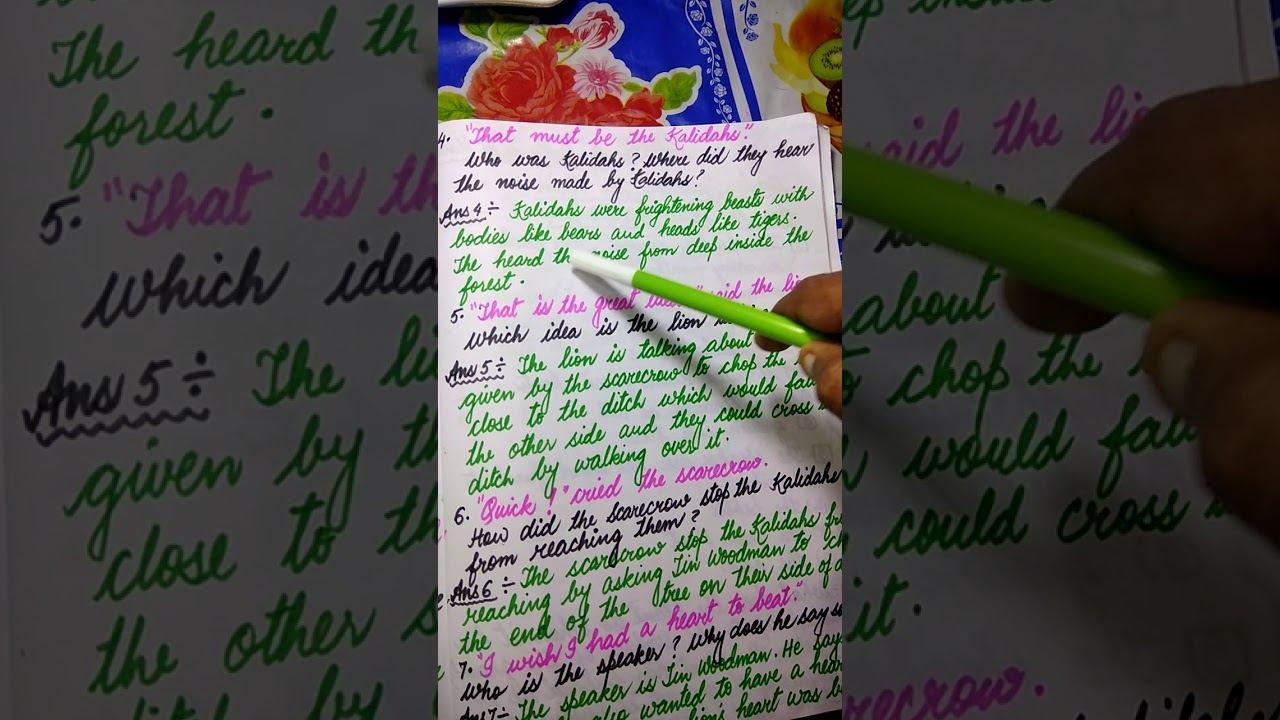 4. "That must be the Kalidahs."
Who was Kalidahs? Where did they hear
the noise made by Kalidahs?
Ans 4 ÷ Kalidahs were frightening beasts with
bodies like bears and heads like tigers.
The heard the noise from deep inside the
forest.
5. "That is the great said the
which idea is the lion
Ans 5 ÷ The lion is talking about
given by the scarecrow to chop the
close to the ditch which would fall
the other side and they could cross
ditch by walking over it.
6. "Quick!" cried the scarecrow.
How did the scarecrow stop the Kalidahs
from reaching them?
Ans 6 ÷ The scarecrow stop the Kalidahs
reaching by asking Tin Woodman to
the end of the tree on their side of
7. "I wish I had a heart to beat."
Who is the speaker? Why does he say
Ans 7 ÷ The speaker is Tin Woodman. He
also wanted to have a
heart was